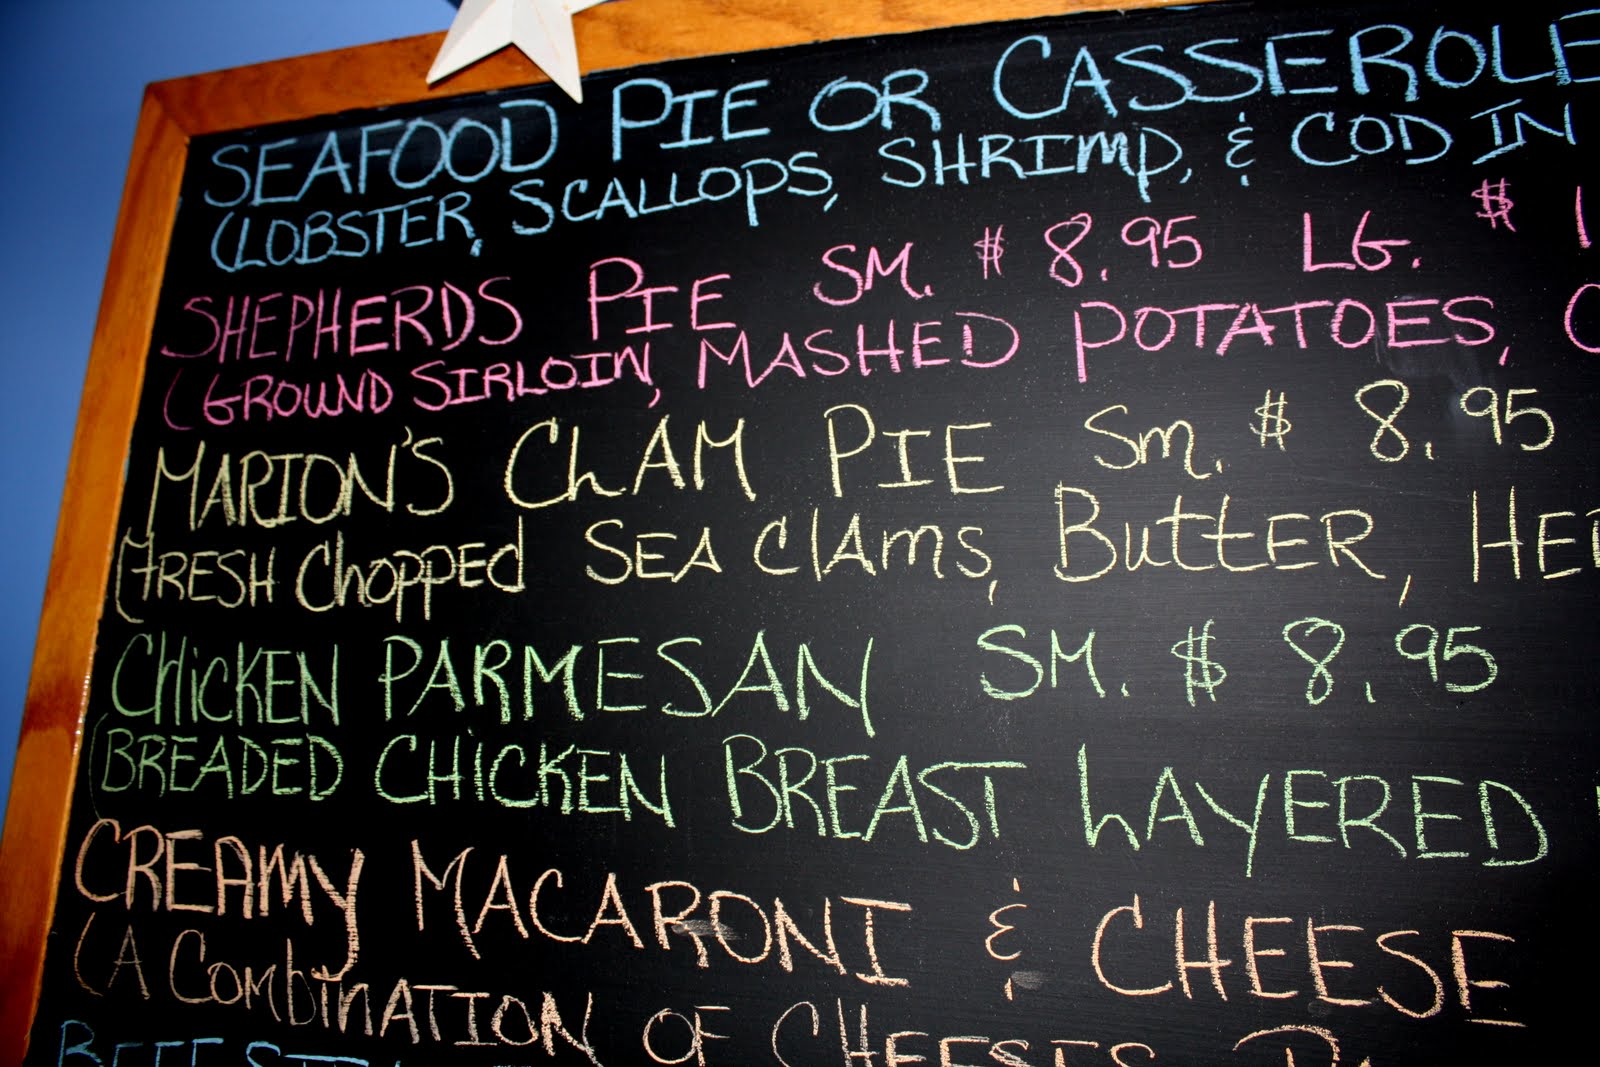 SEAFOOD PIE OR CASSEROLE
(LOBSTER, SCALLOPS, SHRIMP, & COD IN
SHEPHERDS PIE SM. $ 8.95 LG. $ 1
(GROUND SIRLOIN, MASHED POTATOES, C
MARION'S CLAM PIE Sm. $ 8.95
(FRESH Chopped SEA Clams, ButtER, HE
CHicKEN PARMESAN SM. $ 8.95
(BREADED CHicKEN BREAST LAYERED
CREAMY MACARONI & CHEESE
(A CombiNATION OF CHEESES,